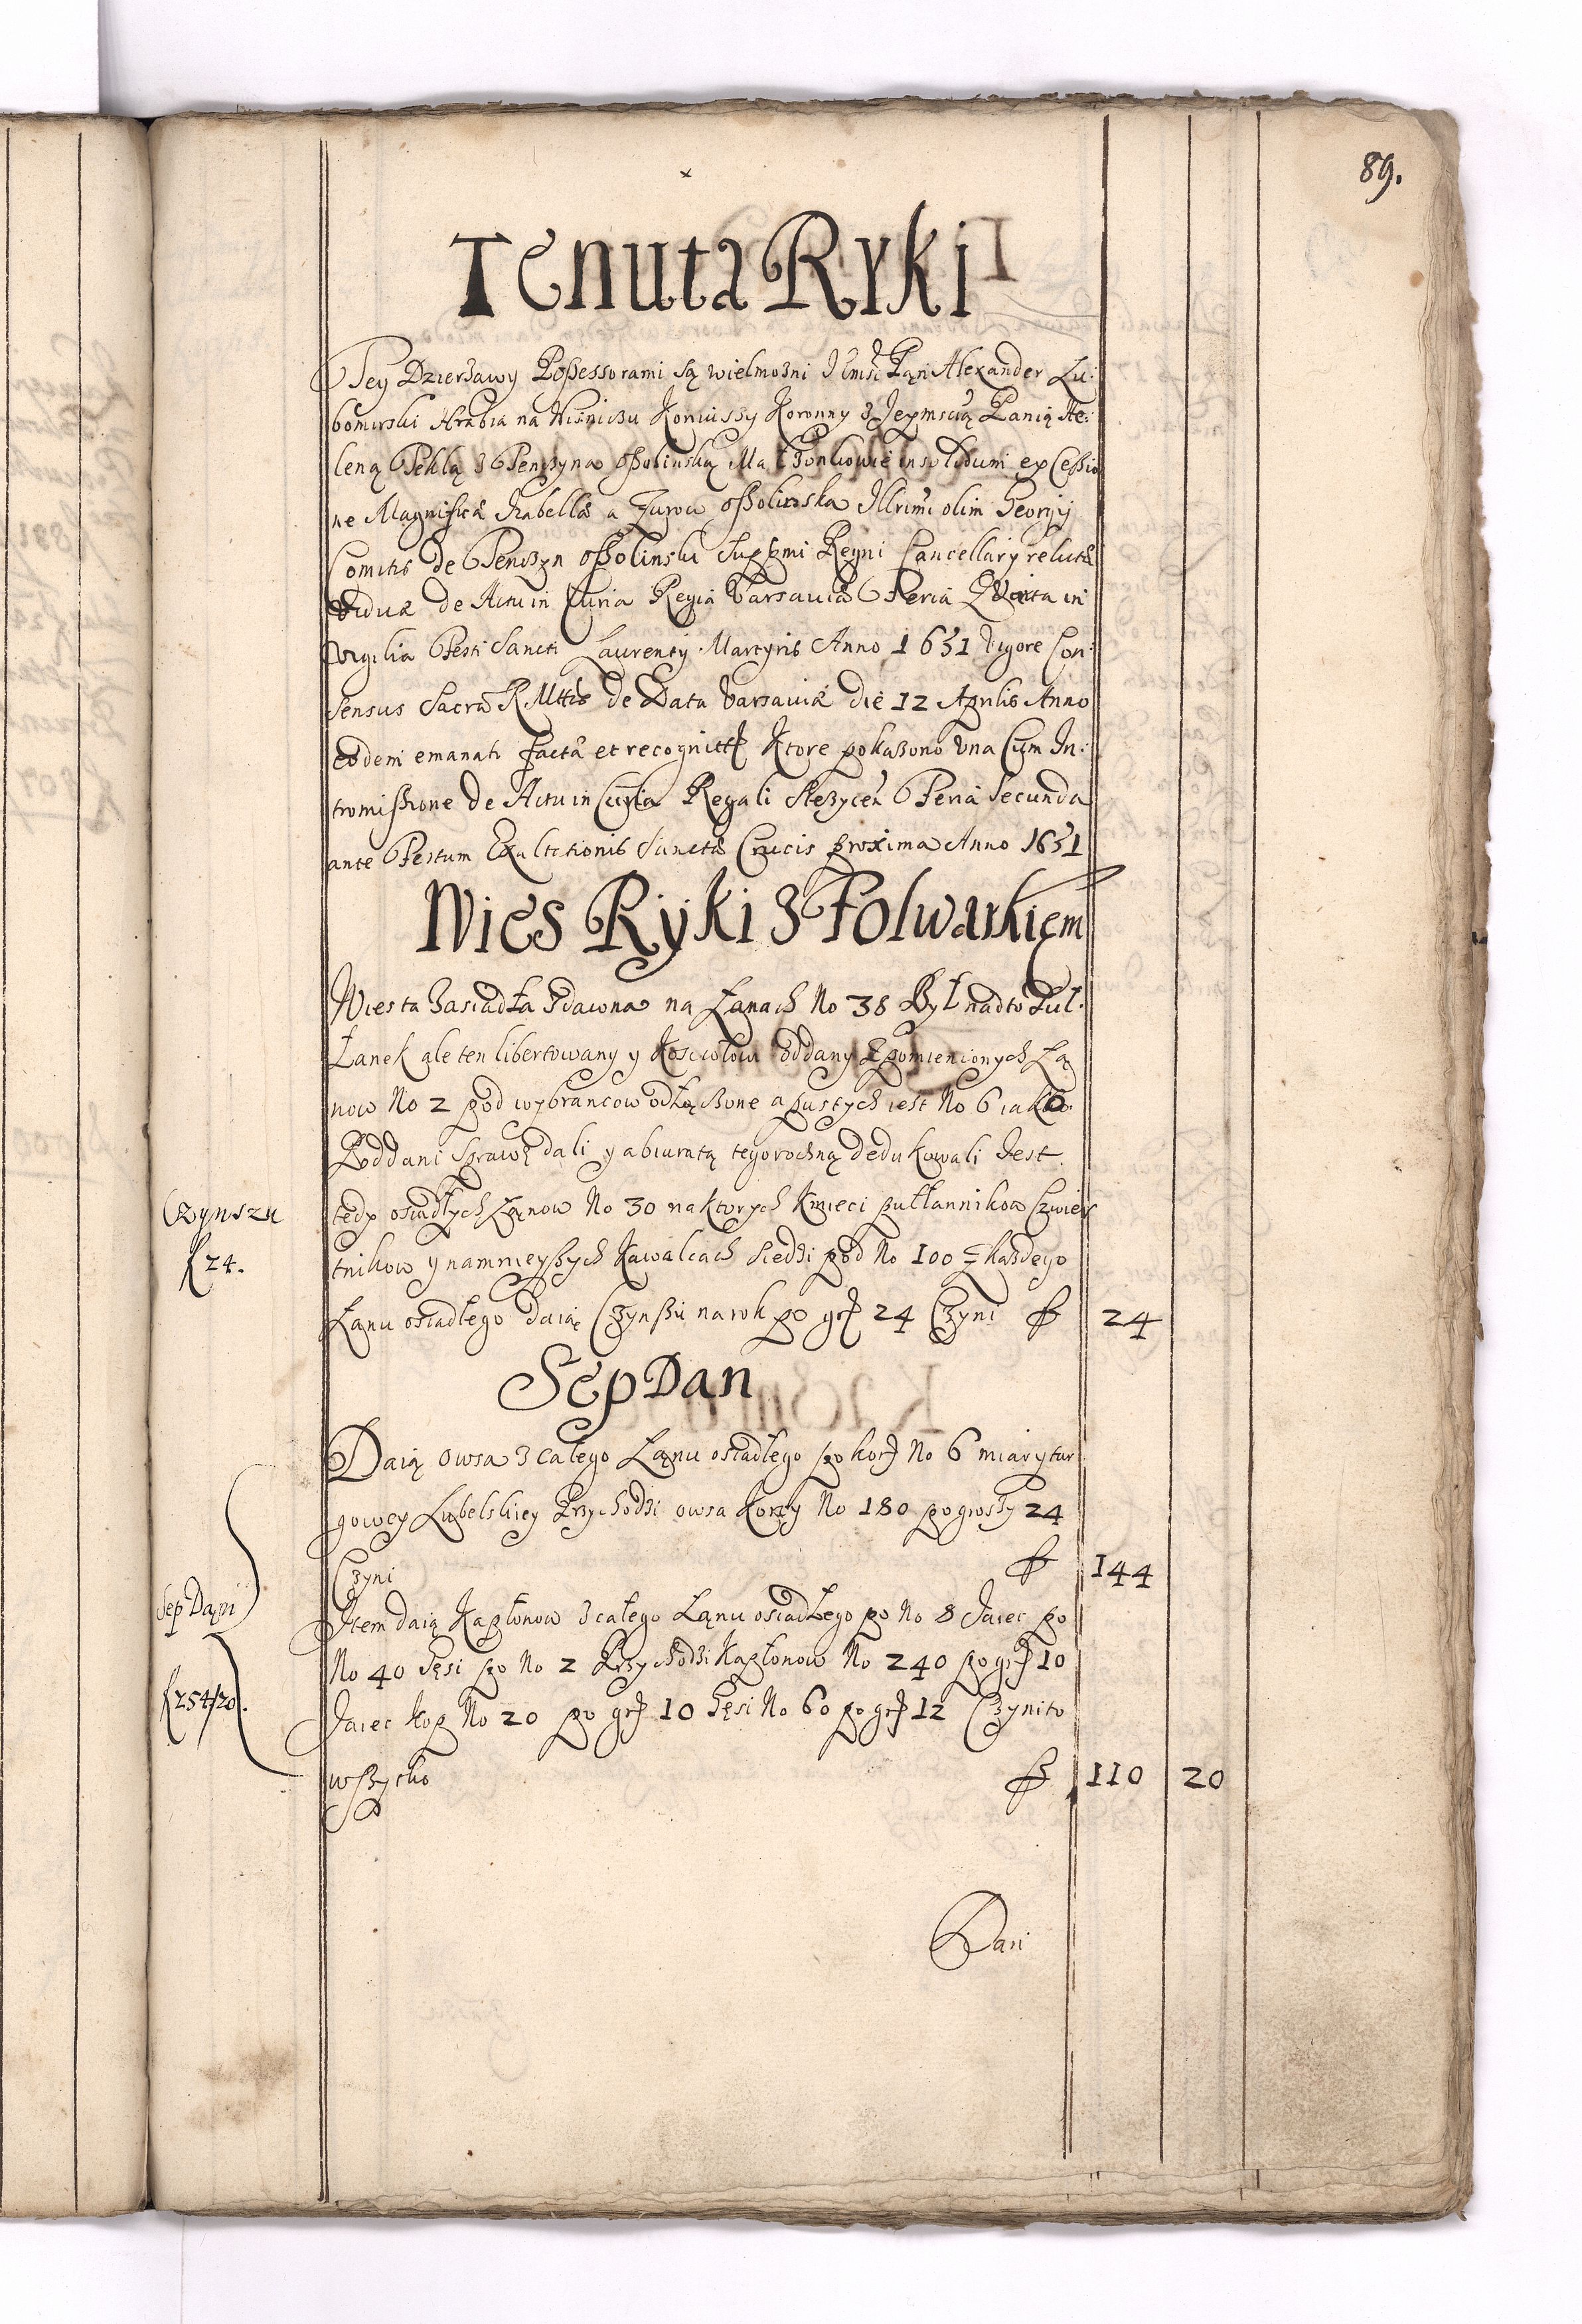 89.
Tenuta Ryki
Tey Dzierżawy Possessorami są wielmożni Jego Pan Alexander Lu:
bomirski Hrabia na Wiśniczu Koniuszy Koronny z Jeymscią Panią He:
leną Teklą z Tenszyna Ossolinską Małżonkowie insolidum ex Cessio
ne Magnificæ Izabellæ a Zurow Ossolinska Illrimi olim Georgij
Comitis de Tenczyn Ossolinski Suppmi Regni Cancellarij relictæ
viduæ de Actu in Curia Regia Varsaviæ Feria Quarta in
vigilia Festi Sancti Laurentij Martyris Anno 1651 vigore Con:
sensus Sacræ R Mttis de Data Varsaviæ die 12 Aprilis Anno
eodem emanati factæ et recognitæ Ktore pokazono vna Cum In:
tromissione de Actu in Curia Regali Stezycen Feria Secunda
ante Festum Exaltationis Sanctæ Crucis proxima Anno 1651
Wies Ryki z Folwarkięm
Wies ta zasiadła zdawna na Łanach No 38 Był nadto Puł
Łanek ale ten libertowany y Kosciołowi oddany Zpomienionych Ła
now No 2 pod wybrancow odłączone a pustych iest No 6 iako
Poddani Sprawę dali y abiuratą tegoroczną dedukowali Jest
tedy osiadłych Łanow No 30 na ktorych Kmieci pułłannikow Czwier
tnikow y namnieyszych Kawalcach siedzi pod No 100 z każdego
Łanu osiadłego daią Czynszu na rok po gr 24 Czyni f 24
Czynszu
f 24.
Sep Dan
Daią owsa z całego Łanu osiadłego po kor No 6 miary tar
gowey Lubelskiey Przychodzi owsa Korcy No 180 po groszy 24
Czyni f 144
Item daią Kapłonow z całego Łanu osiadłego po No 8 Jaiec po
No 40 Gęsi po No 2 Przychodzi Kapłonow No 240 po gr 10
Jaiec kop No 20 po gr 10 Gęsi No 60 po gr 12 Czyni to
wszycko f 110 20
Sep Dani
f 254/20.
Dani